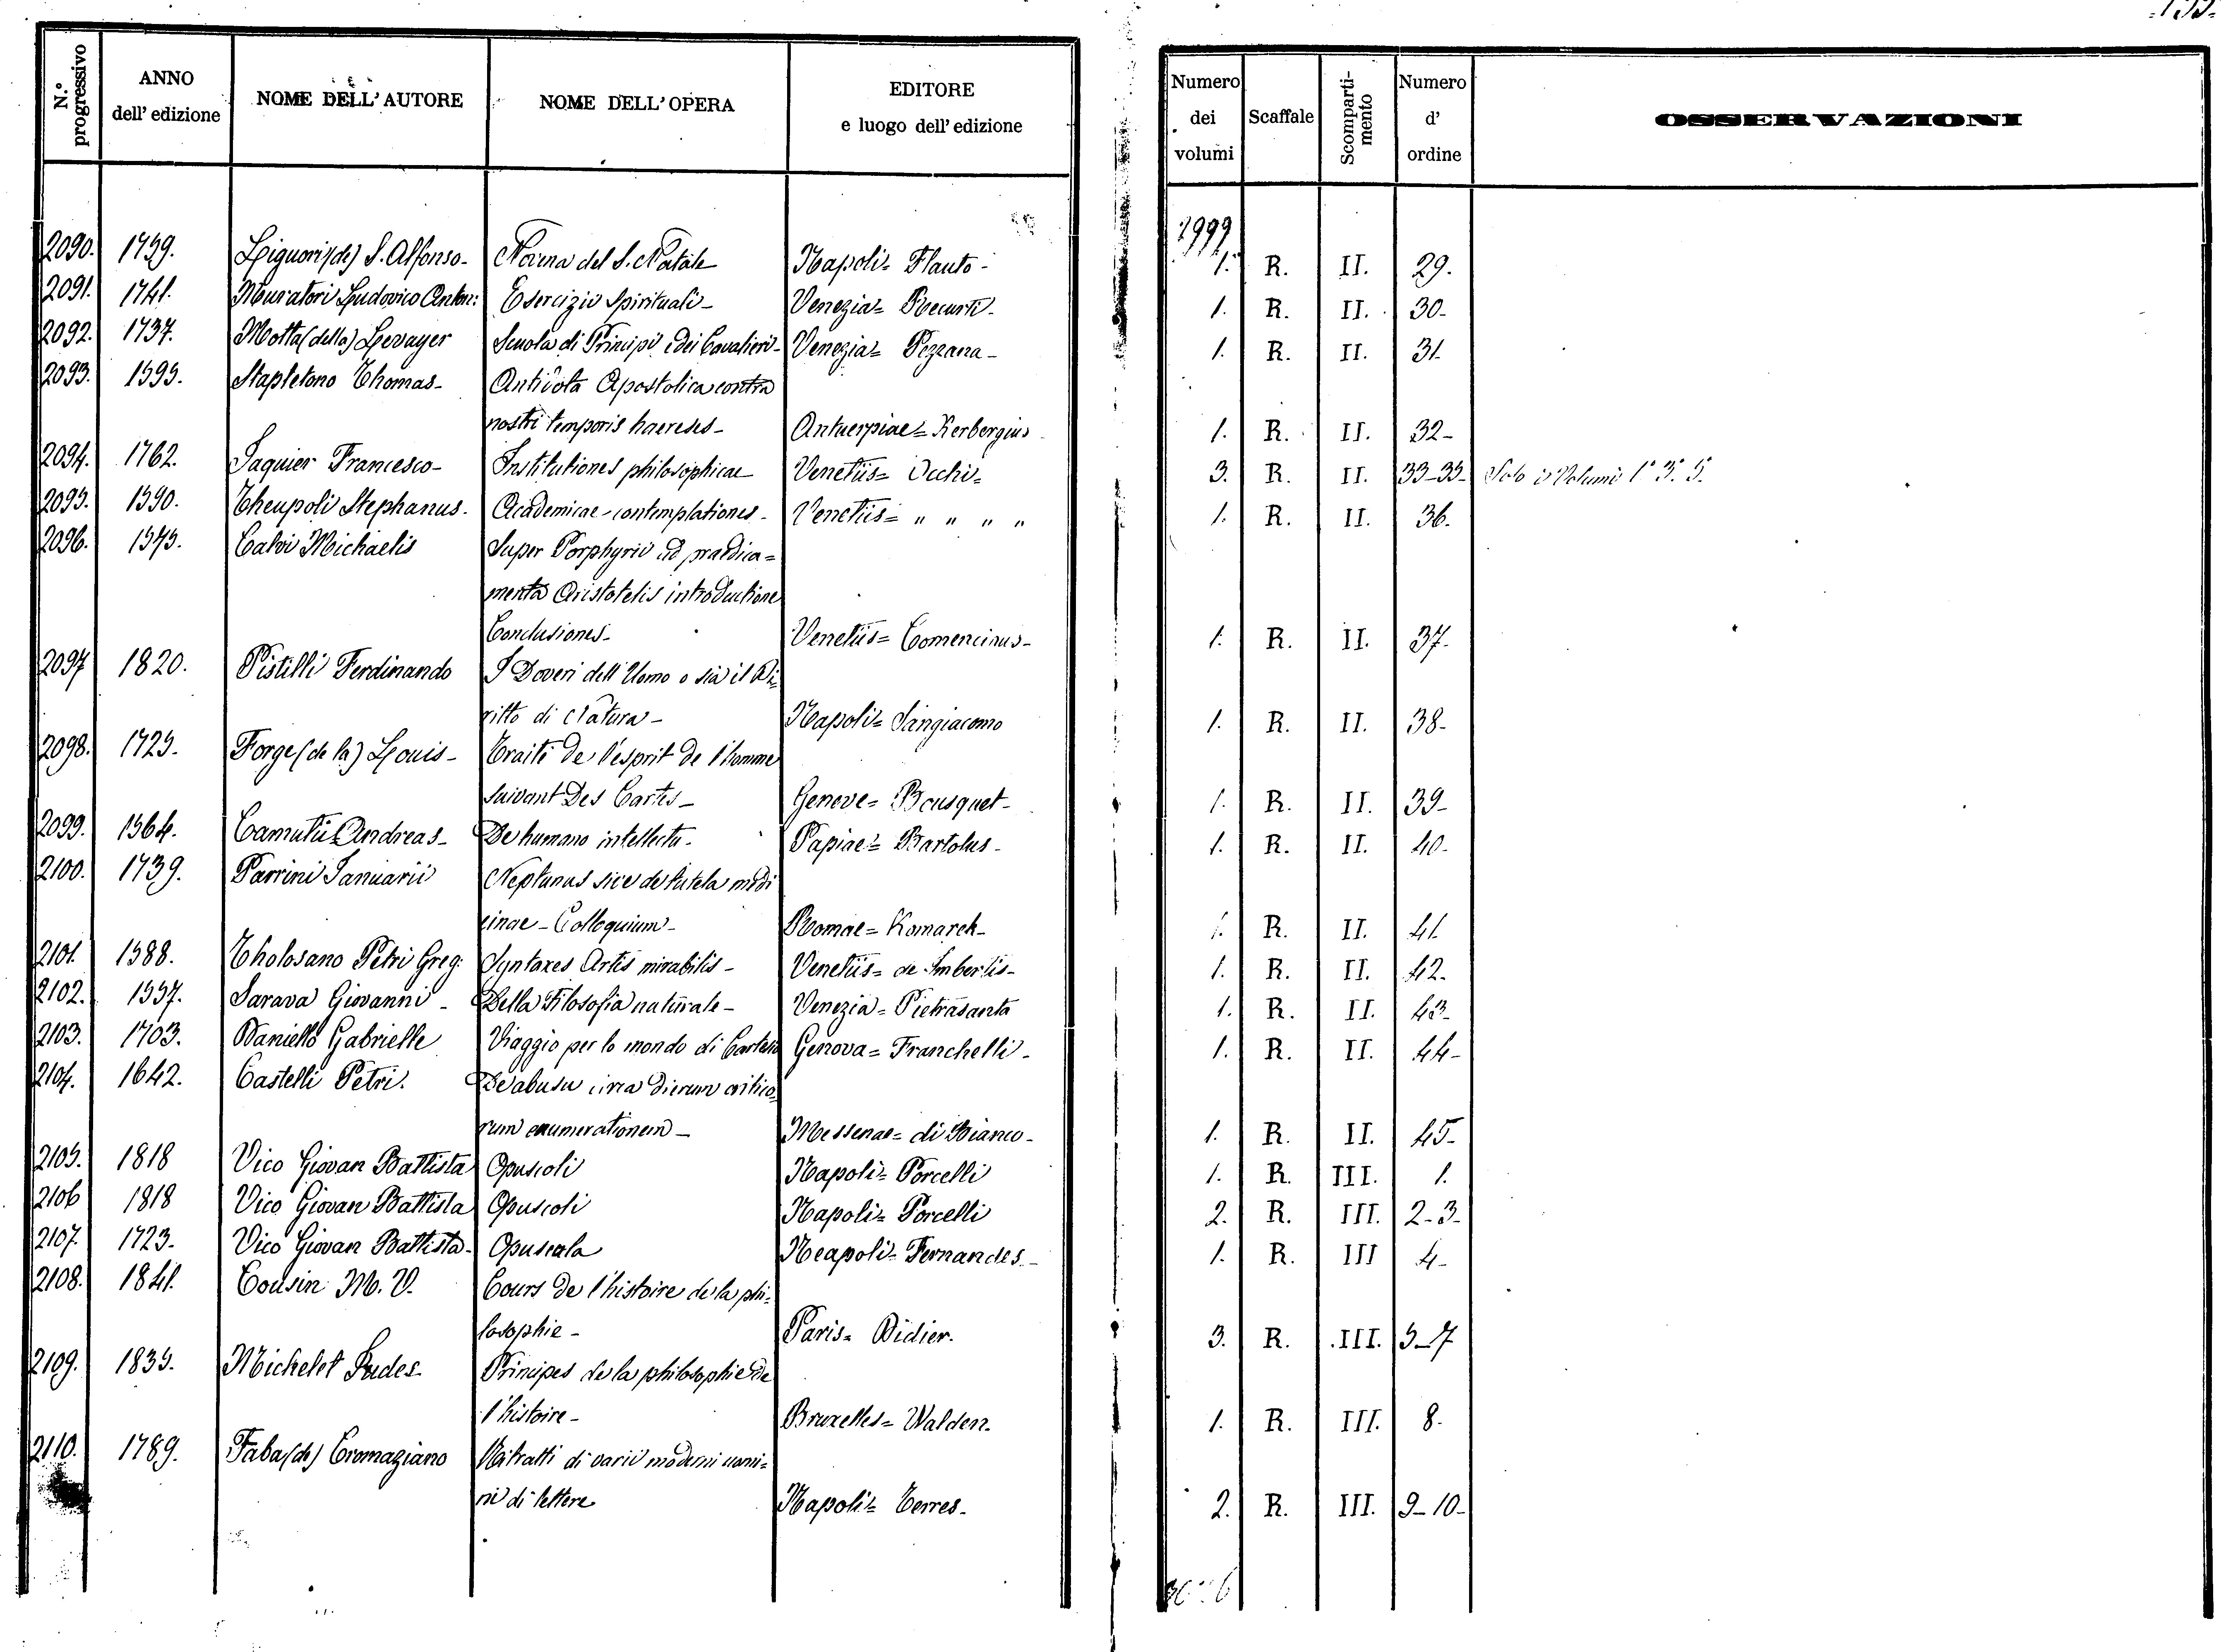 N.° progressivo | ANNO dell' edizione | NOME DELL'AUTORE | NOME DELL'OPERA | EDITORE e luogo dell'edizione | Numero dei volumi | Scaffale | Scomparti-mento | Numero d' ordine | OSSERVAZIONI
2090. 1759. Liguori (de) S. Alfonso- Novena del S. Natale Napoli= Flauto- 1. R. II. 29.
2091. 1741. Muratori Ludovico Anton: Esercizii Spirituali- Venezia= Recurti- 1. R. II. 30-
2092. 1737. Motta (della) Levayer Scuola di Principii e dei Cavalieri- Venezia= Pezzana- 1. R. II. 31.
2093. 1595. Stapletono Thomas- Antidota Apostolica contra
nostri temporis haereses- Antuerpiae= Kerbergius 1. R. II. 32-
2094. 1762. Jaquier Francesco- Institutiones philosophicae Venetiis= Occhi= 3. R. II. 33-35- Solo i Volumi 1° 3° 5°
2095. 1590. Theupoli Stephanus. Academicae contemplationes- Venetiis= " " " " 1. R. II. 36.
2096. 1575. Calvi Michaelis Super Porphyrii ad praedica=
menta Aristotelis introductione
Conclusiones- Venetiis= Comencinus- 1. R. II. 37-
2097 1820. Pistilli Ferdinando I Doveri dell'Uomo o sia il Di=
ritto di Natura- Napoli= Sangiacomo 1. R. II. 38-
2098. 1725. Forge (de la) Louis- Traité de l'esprit de l'homme
suivant Des Cartes- Geneve= Bousquet- 1. R. II. 39-
2099. 1564. Camutii Andreas- De humano intellectu- Papiae= Bartolus- 1. R. II. 40-
2100. 1739. Parrini Januarii Neptunus sive de tutela medi
cinae- Colloquium- Romae= Komarek- 1. R. II. 41.
2101. 1588. Tholosano Petri Greg: Syntaxes Artis mirabilis- Venetiis= de Imbertis- 1. R. II. 42.
2102. 1557. Sarava Giovanni- Della Filosofia naturale- Venezia= Pietrasanta 1. R. II. 43-
2103. 1703. Daniello Gabrielle Viaggio per lo mondo di Cartesio Genova= Franchelli- 1. R. II. 44-
2104. 1642. Castelli Petri. De abusu circa dierum critico=
rum enumerationem- Messenae= di Bianco- 1. R. II. 45-
2105. 1818 Vico Giovan Battista Opuscoli Napoli= Porcelli 1. R. III. 1.
2106 1818 Vico Giovan Battista Opuscoli Napoli= Porcelli 2. R. III. 2-3-
2107. 1723- Vico Giovan Battista- Opuscula Neapoli= Fernandes- 1. R. III 4-
2108. 1841. Cousin M. V. Cours de l'histoire de la phi=
losophie- Paris= Didier. 3. R. III. 5-7
2109. 1835. Michelet Judes- Principes de la philosophie de
l'histoire- Bruxelles= Walden. 1. R. III. 8-
2110. 1789. Faba (de) Cromaziano Ritratti di varii moderni uomi=
ni di lettere Napoli= Terres- 2. R. III. 9-10-